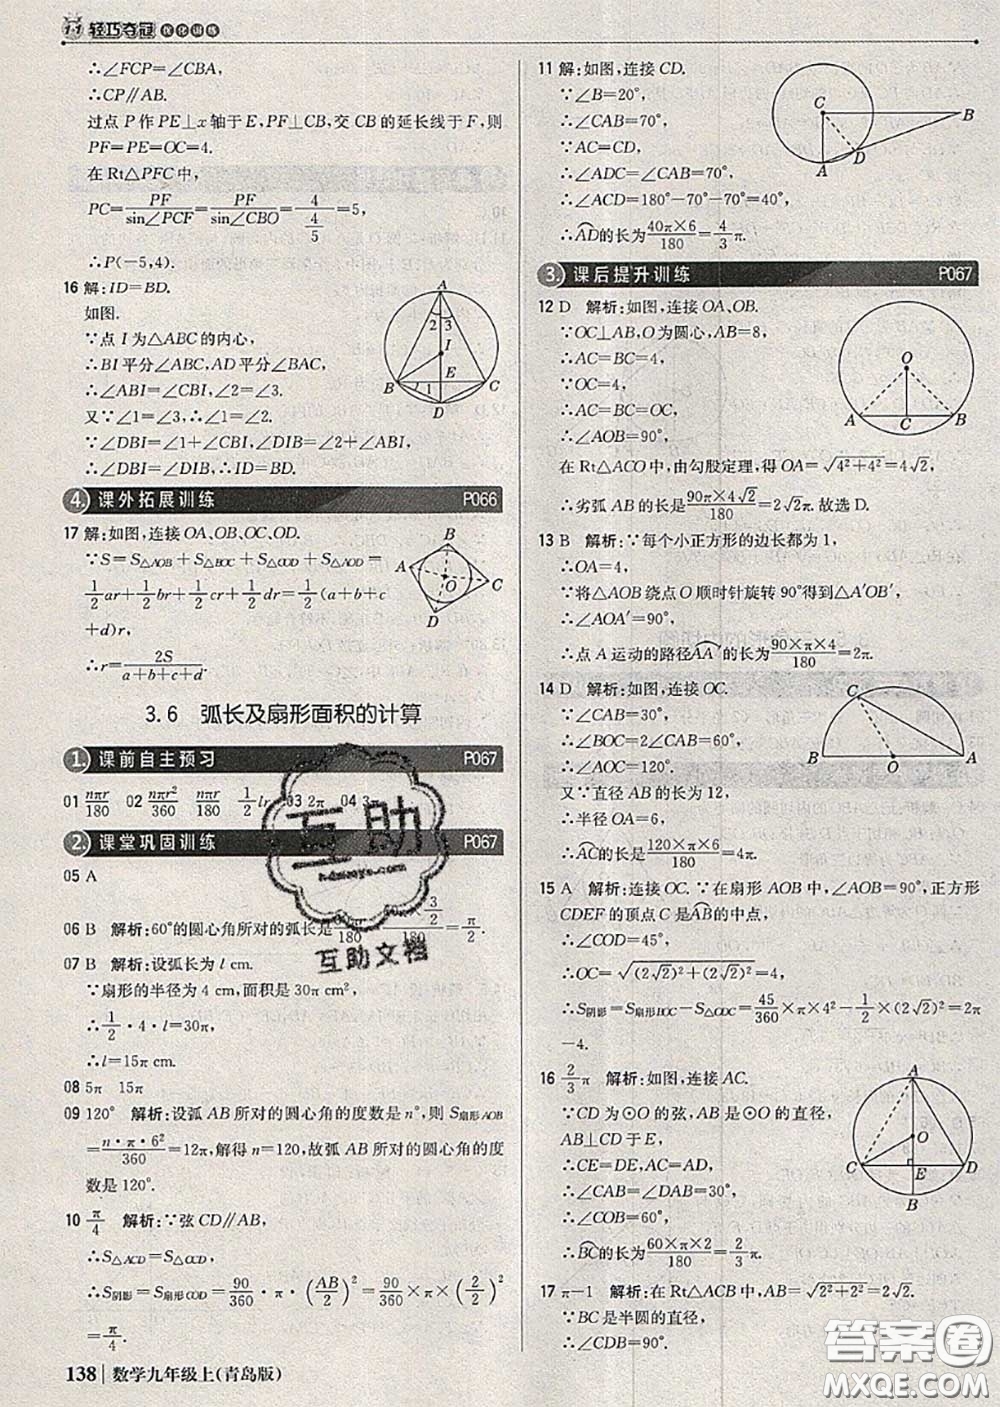 1+1 轻巧夺冠 优化训练
∴∠FCP=∠CBA,
∴CP∥AB.
过点 P 作 PE⊥x 轴于 E,PF⊥CB,交 CB 的延长线于 F,则
PF=PE=OC=4.
在 Rt△PFC 中,
PC=PF/sin∠PCF=PF/sin∠CBO=4/(4/5)=5,
∴P(-5,4).
16 解:ID=BD.
如图.
∵点 I 为△ABC 的内心,
∴BI 平分∠ABC,AD 平分∠BAC,
∴∠ABI=∠CBI,∠2=∠3.
又∵∠1=∠3,∴∠1=∠2.
∵∠DBI=∠1+∠CBI,∠DIB=∠2+∠ABI,
∴∠DBI=∠DIB,∴ID=BD.
A
2 3
I
E
B 1 C
D
4. 课外拓展训练 P066
17 解:如图,连接 OA、OB、OC、OD.
∵S=S△AOB+S△BOC+S△COD+S△AOD=
1/2 ar+1/2 br+1/2 cr+1/2 dr=1/2(a+b+c
+d)r,
∴r=2S/(a+b+c+d).
B
A
O C
D
3.6 弧长及扇形面积的计算
1. 课前自主预习 P067
01 nπr/180 02 nπr²/360 nπr/180 1/2 lr 03 2π 04 3π
2. 课堂巩固训练 P067
05 A
06 B 解析:60°的圆心角所对的弧长是 180 = 180 = π/2.
07 B 解析:设弧长为 l cm.
∵扇形的半径为 4 cm,面积是 30π cm²,
∴1/2·4·l=30π,
∴l=15π cm.
08 5π 15π
09 120° 解析:设弧 AB 所对的圆心角的度数是 n°,则 S扇形AOB
=n·π·6²/360=12π,解得 n=120,故弧 AB 所对的圆心角的度
数是 120°.
10 π/4 解析:∵弦 CD∥AB,
∴S△ACD=S△OCD,
∴S阴影=S扇形COD=90/360·π·(AB/2)²=90/360×π×(2/2)²
=π/4.
138 数学九年级上(青岛版)
11 解:如图,连接 CD.
∵∠B=20°,
∴∠CAB=70°,
∵AC=CD,
∴∠ADC=∠CAB=70°,
∴∠ACD=180°-70°-70°=40°,
∴AD的长为40π×6/180=4/3π.
C B
D
A
3. 课后提升训练 P067
12 D 解析:如图,连接 OA、OB.
∵OC⊥AB,O 为圆心,AB=8,
∴AC=BC=4,
∵OC=4,
∴AC=BC=OC,
∴∠AOB=90°,
在 Rt△ACO 中,由勾股定理,得 OA=√(4²+4²)=4√2,
∴劣弧 AB 的长为90π×4√2/180=2√2π. 故选 D.
O
A C B
13 B 解析:∵每个小正方形的边长都为 1,
∴OA=4,
∵将△AOB 绕点 O 顺时针旋转 90°得到△A′OB′,
∴∠AOA′=90°,
∴点 A 运动的路径AA′的长为90×π×4/180=2π.
14 D 解析:如图,连接 OC.
∵∠CAB=30°,
∴∠BOC=2∠CAB=60°,
∴∠AOC=120°.
又∵直径 AB 的长为 12,
∴半径 OA=6,
∴AC的长为120×π×6/180=4π.
C
B O A
15 A 解析:连接 OC. ∵在扇形 AOB 中,∠AOB=90°,正方形
CDEF 的顶点 C 是AB的中点,
∴∠COD=45°,
∴OC=√((2√2)²+(2√2)²)=4,
∴S阴影=S扇形BOC-S△ODC=45/360×π×4²-1/2×(2√2)²=2π
-4.
16 2/3π 解析:如图,连接 AC.
∵CD 为⊙O 的弦,AB 是⊙O 的直径,
AB⊥CD 于 E,
∴CE=DE,AC=AD,
∴∠CAB=∠DAB=30°,
∴∠COB=60°,
∴BC的长为60×π×2/180=2/3π.
A
O
C E D
B
17 π-1 解析:在 Rt△ACB 中,AB=√(2²+2²)=2√2.
∵BC 是半圆的直径,
∴∠CDB=90°.
互助
h-dmanye.com
互助文档
答案圈
MXQE.COM